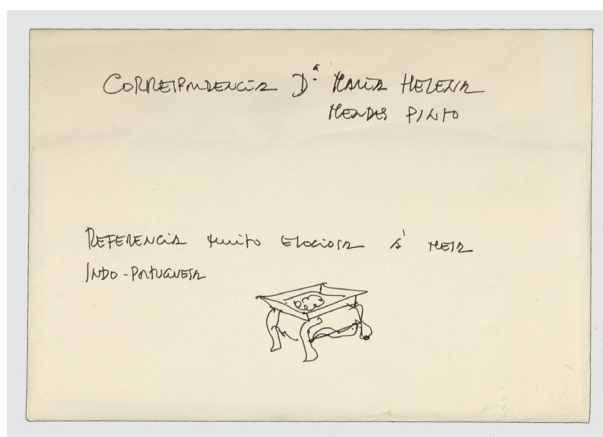 CORRESPONDENCIA D.ª MARIA HELENA
MENDES PINTO
REFERENCIA MUITO ELOGIOSA Á MESA
INDO-PORTUGUESA